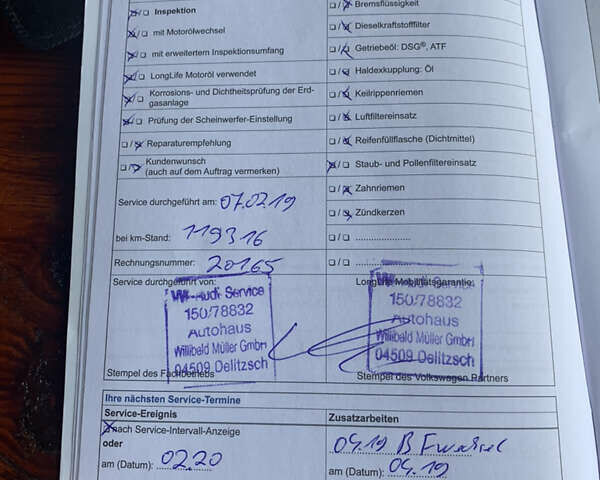 Inspektion
mit Motorölwechsel
mit erweitertem Inspektionsumfang
LongLife Motoröl verwendet
Korrosions- und Dichtheitsprüfung der Erd-
gasanlage
Prüfung der Scheinwerfer-Einstellung
Reparaturempfehlung
Kundenwunsch
(auch auf dem Auftrag vermerken)
Service durchgeführt am: 07.02.19
bei km-Stand: 119316
Rechnungsnummer: 20165
Bremsflüssigkeit
Dieselkraftstofffilter
Getriebeöl: DSG®, ATF
Haldexkupplung: Öl
Keilrippenriemen
Luftfiltereinsatz
Reifenfüllflasche (Dichtmittel)
Staub- und Pollenfiltereinsatz
Zahnriemen
Zündkerzen
Service durchgeführt von:
VW-Audi Service
150/78832
Autohaus
Willibald Müller GmbH
04509 Delitzsch
Stempel des Fachbetriebs
LongLife Mobilitätsgarantie:
VW-Audi Service
150/78832
Autohaus
Willibald Müller GmbH
04509 Delitzsch
Stempel des Volkswagen Partners
Ihre nächsten Service-Termine
Service-Ereignis
nach Service-Intervall-Anzeige
oder
am (Datum): 02.20
Zusatzarbeiten
04.19 B F wechsel
am (Datum): 04.19